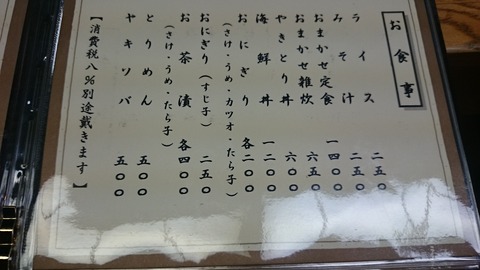 お食事
ライス 二五〇
みそ汁 二五〇
おまかせ定食 一四〇〇
おまかせ雑炊 六五〇
やきとり丼 六〇〇
海鮮丼 一二〇〇
おにぎり 各二〇〇
(さけ・うめ・カツオ・たら子)
おにぎり(すじ子) 二五〇
お茶漬 各四〇〇
(さけ・うめ・たら子)
とりめん 五〇〇
ヤキソバ 五〇〇
【消費税八%別途戴きます】